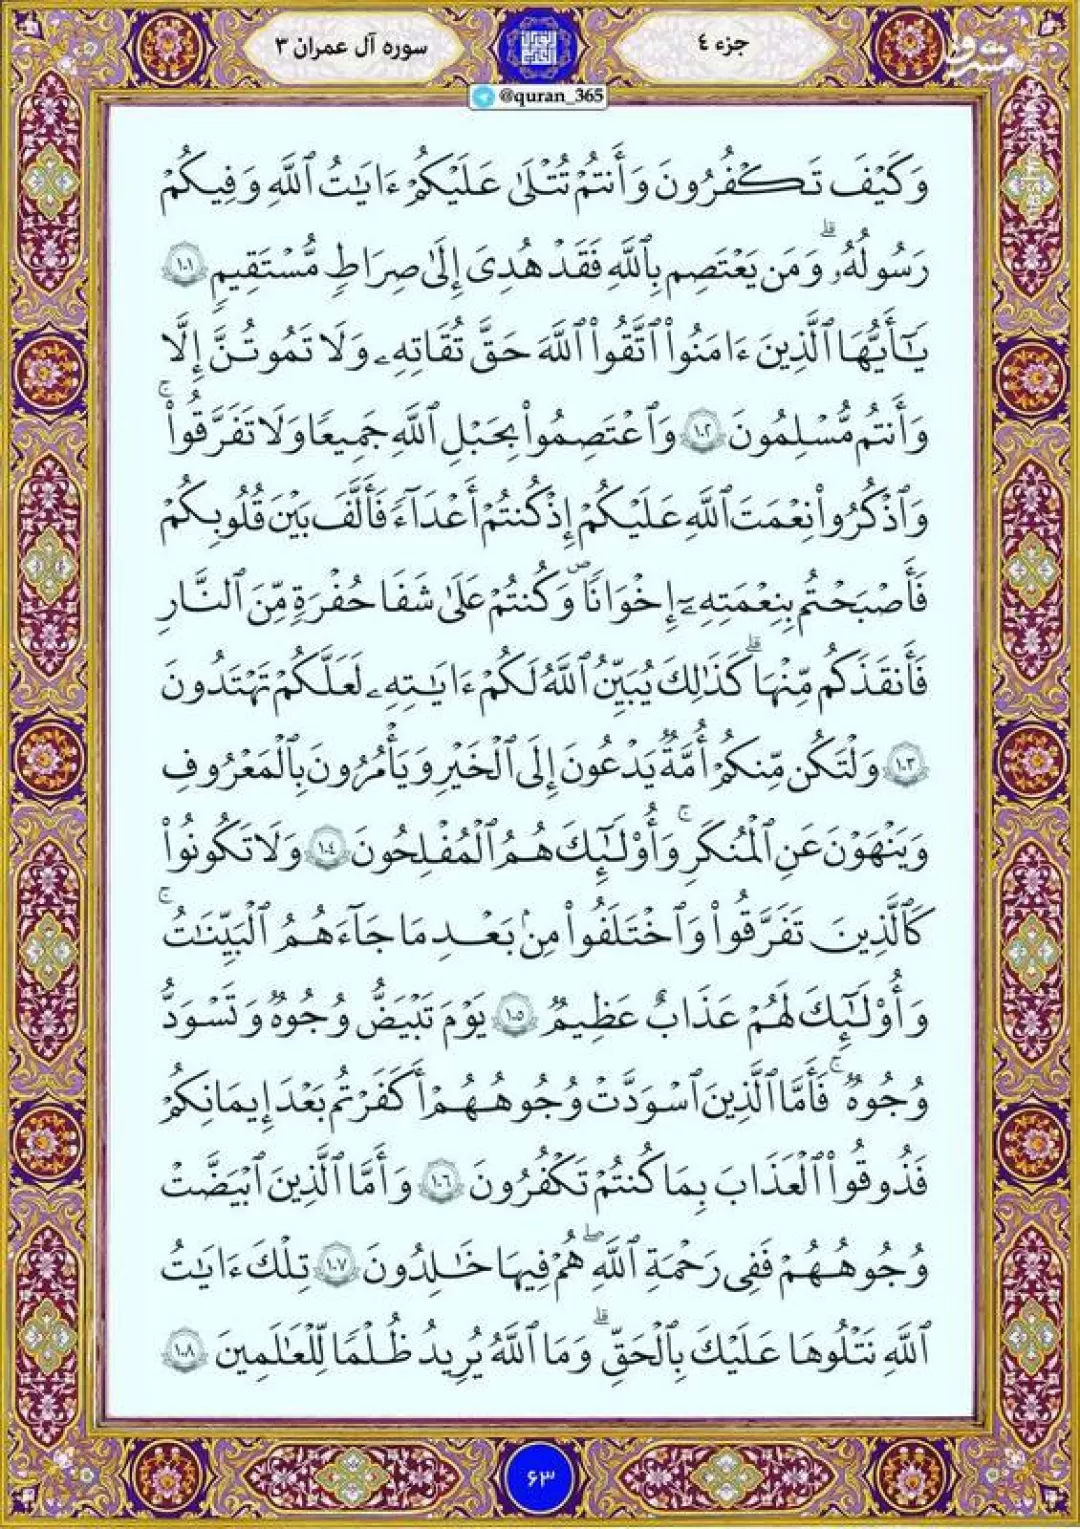 جزء ٤
سوره آل عمران ٣
@quran_365
وَكَيْفَ تَكْفُرُونَ وَأَنتُمْ تُتْلَىٰ عَلَيْكُمْ ءَايَـٰتُ ٱللَّهِ وَفِيكُمْ
رَسُولُهُۥ ۗ وَمَن يَعْتَصِم بِٱللَّهِ فَقَدْ هُدِىَ إِلَىٰ صِرَٰطٍ مُّسْتَقِيمٍ ١٠١
يَـٰٓأَيُّهَا ٱلَّذِينَ ءَامَنُوا۟ ٱتَّقُوا۟ ٱللَّهَ حَقَّ تُقَاتِهِۦ وَلَا تَمُوتُنَّ إِلَّا
وَأَنتُم مُّسْلِمُونَ ١٠٢ وَٱعْتَصِمُوا۟ بِحَبْلِ ٱللَّهِ جَمِيعًا وَلَا تَفَرَّقُوا۟ ۚ
وَٱذْكُرُوا۟ نِعْمَتَ ٱللَّهِ عَلَيْكُمْ إِذْ كُنتُمْ أَعْدَآءً فَأَلَّفَ بَيْنَ قُلُوبِكُمْ
فَأَصْبَحْتُم بِنِعْمَتِهِۦٓ إِخْوَٰنًا وَكُنتُمْ عَلَىٰ شَفَا حُفْرَةٍ مِّنَ ٱلنَّارِ
فَأَنقَذَكُم مِّنْهَا ۗ كَذَٰلِكَ يُبَيِّنُ ٱللَّهُ لَكُمْ ءَايَـٰتِهِۦ لَعَلَّكُمْ تَهْتَدُونَ
١٠٣ وَلْتَكُن مِّنكُمْ أُمَّةٌ يَدْعُونَ إِلَى ٱلْخَيْرِ وَيَأْمُرُونَ بِٱلْمَعْرُوفِ
وَيَنْهَوْنَ عَنِ ٱلْمُنكَرِ ۚ وَأُو۟لَـٰٓئِكَ هُمُ ٱلْمُفْلِحُونَ ١٠٤ وَلَا تَكُونُوا۟
كَٱلَّذِينَ تَفَرَّقُوا۟ وَٱخْتَلَفُوا۟ مِنۢ بَعْدِ مَا جَآءَهُمُ ٱلْبَيِّنَـٰتُ ۚ
وَأُو۟لَـٰٓئِكَ لَهُمْ عَذَابٌ عَظِيمٌ ١٠٥ يَوْمَ تَبْيَضُّ وُجُوهٌ وَتَسْوَدُّ
وُجُوهٌ ۚ فَأَمَّا ٱلَّذِينَ ٱسْوَدَّتْ وُجُوهُهُمْ أَكَفَرْتُم بَعْدَ إِيمَـٰنِكُمْ
فَذُوقُوا۟ ٱلْعَذَابَ بِمَا كُنتُمْ تَكْفُرُونَ ١٠٦ وَأَمَّا ٱلَّذِينَ ٱبْيَضَّتْ
وُجُوهُهُمْ فَفِى رَحْمَةِ ٱللَّهِ ۖ هُمْ فِيهَا خَـٰلِدُونَ ١٠٧ تِلْكَ ءَايَـٰتُ
ٱللَّهِ نَتْلُوهَا عَلَيْكَ بِٱلْحَقِّ ۗ وَمَا ٱللَّهُ يُرِيدُ ظُلْمًا لِّلْعَـٰلَمِينَ ١٠٨
۶۳